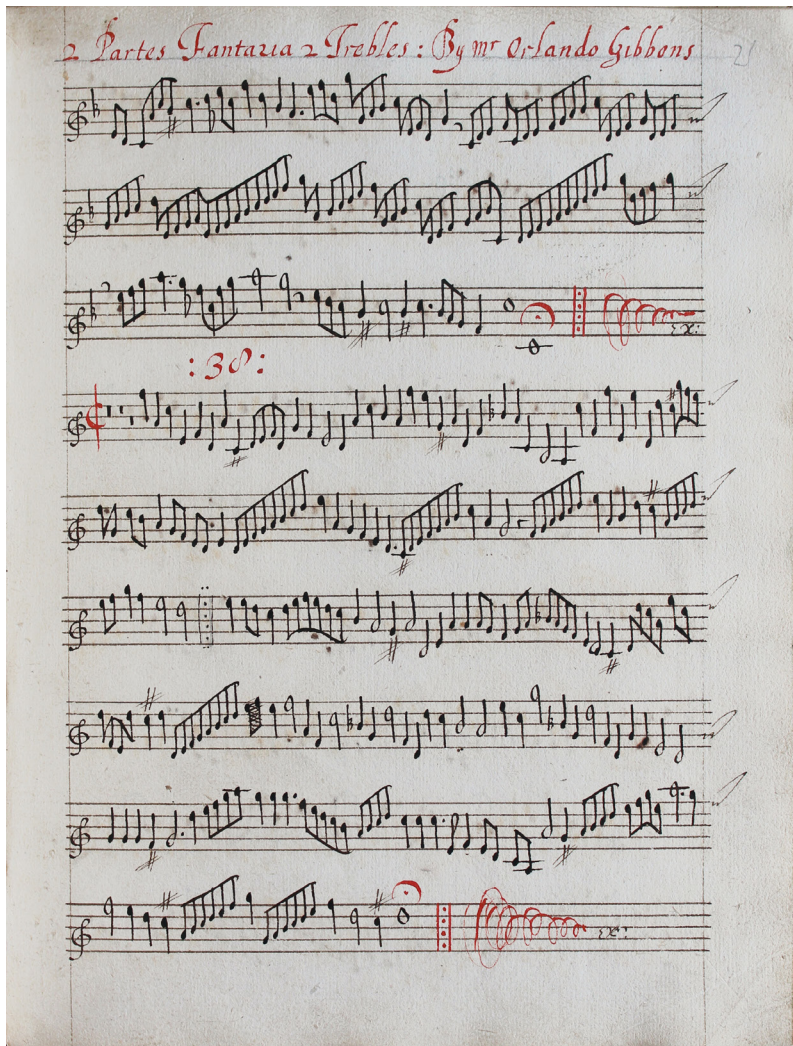 2 Partes Fantazia 2 Trebles : By mr Orlando Gibbons
: 38 :